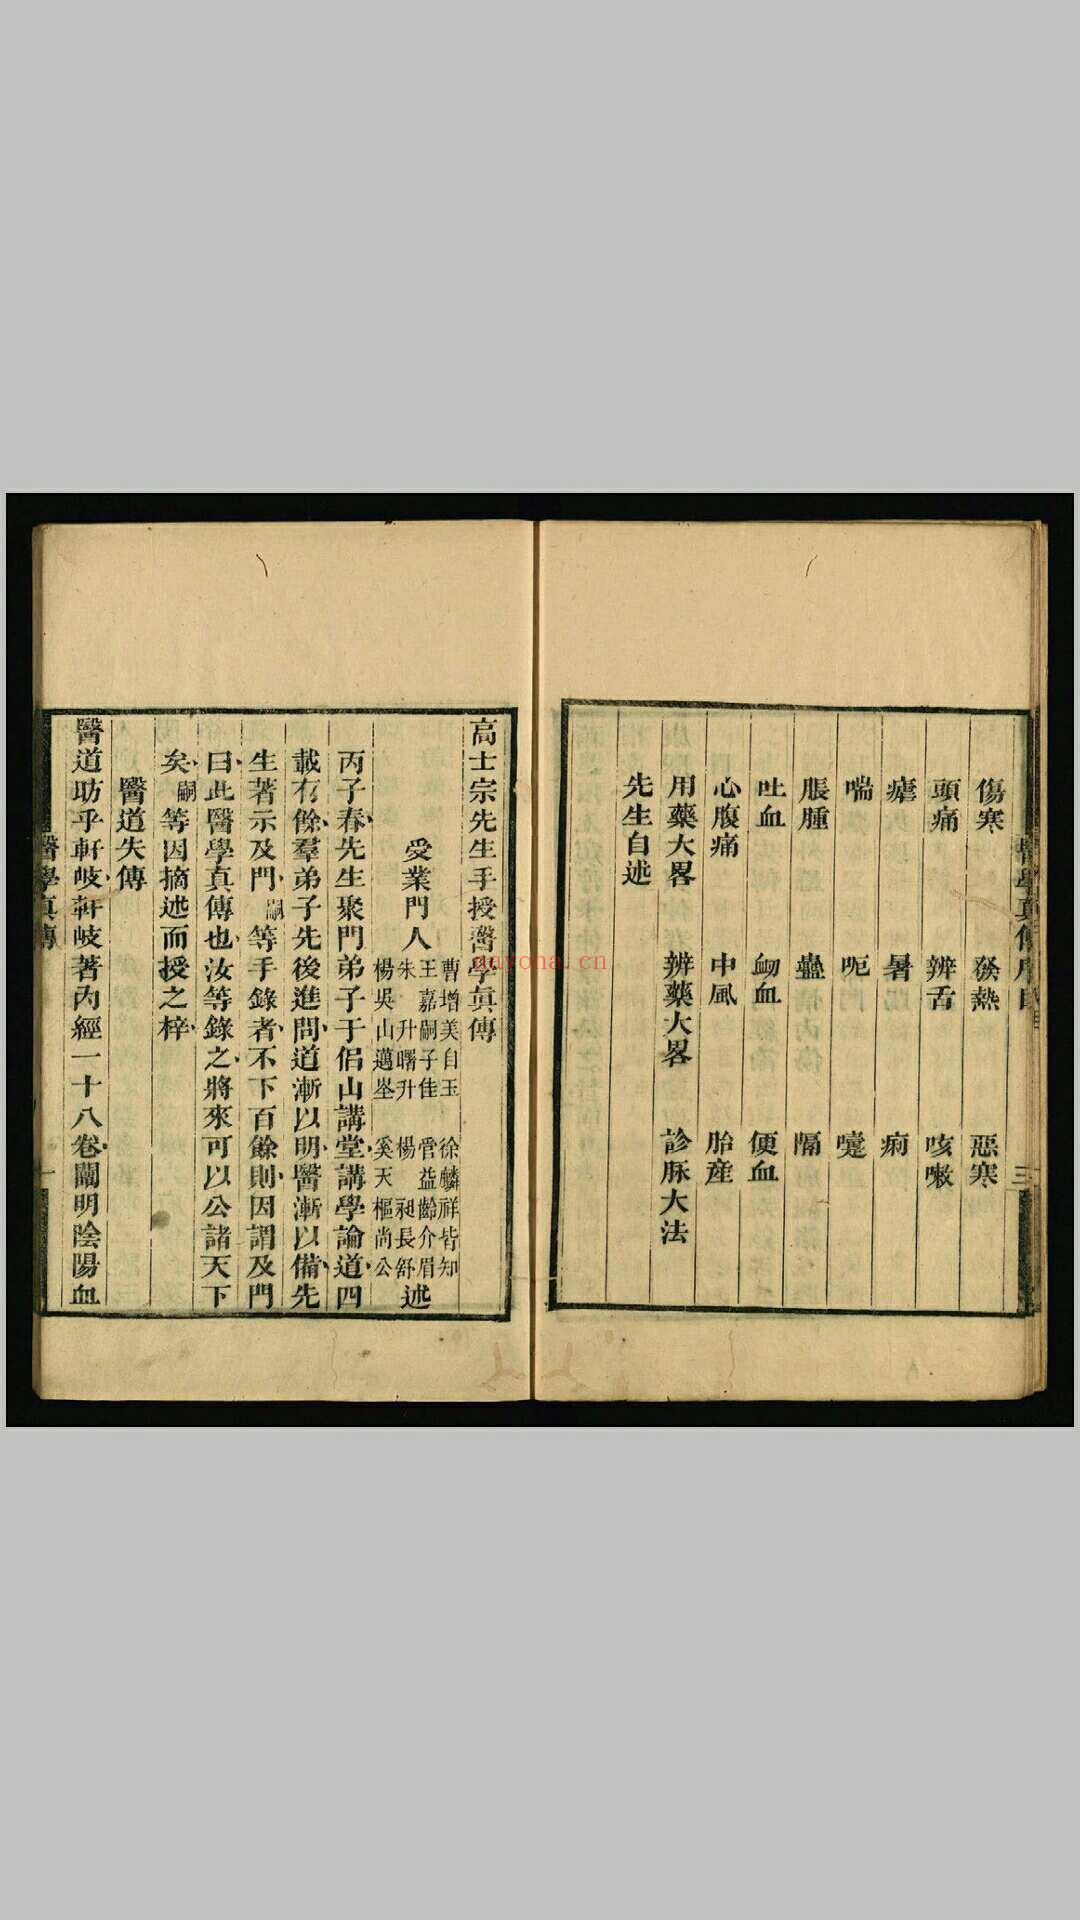 傷寒 發熱 惡寒
頭痛 辨舌 咳嗽
瘧 暑 痢
喘 呃 嚏
脹腫 蠱 隔
吐血 衄血 便血
心腹痛 中風 胎產
用藥大畧 辨藥大畧 診脉大法
先生自述
高士宗先生手授醫學真傳
受業門人
曹增美自玉 徐麟祥皆知
王嘉嗣子佳 管益齡介眉
朱升曙升 楊昶長舒
楊吳山邁峚 奚天樞尚公
述
丙子春先生聚門弟子于侶山講堂講學論道四
載有餘羣弟子先後進問道漸以明醫漸以備先
生著示及門嗣等手錄者不下百餘則因謂及門
曰此醫學真傳也汝等錄之將來可以公諸天下
矣嗣等因摘述而授之梓
醫道失傳
醫道昉乎軒岐軒岐著內經一十八卷闡明陰陽血
醫學真傳
一
qayona.cn